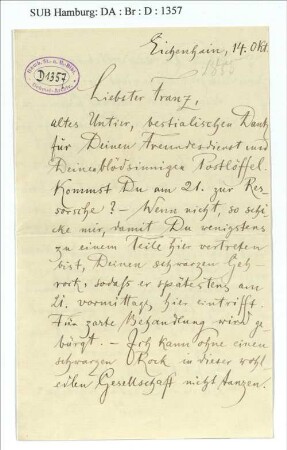 SUB Hamburg: DA : Br : D : 1357
D 1357
Eichenhain, 14. Okt.
Liebster Franz,
altes Untier, bestialischen Dank
für Deinen Freundesdienst und
Deinen blödsinnigen Postlöffel.
Kommst Du am 21. zur Res-
sorsche? – Wenn nicht, so schi-
cke mir, damit Du wenigstens
zu einem Teile hier vertreten
bist, Deinen schwarzen Geh-
rock, sodaß er spätestens am
21. vormittags hier eintrifft.
Für zarte Behandlung wird ge-
bürgt. – Ich kann ohne einen
schwarzen Rock in dieser wohl-
edlen Gesellschaft nicht tanzen.